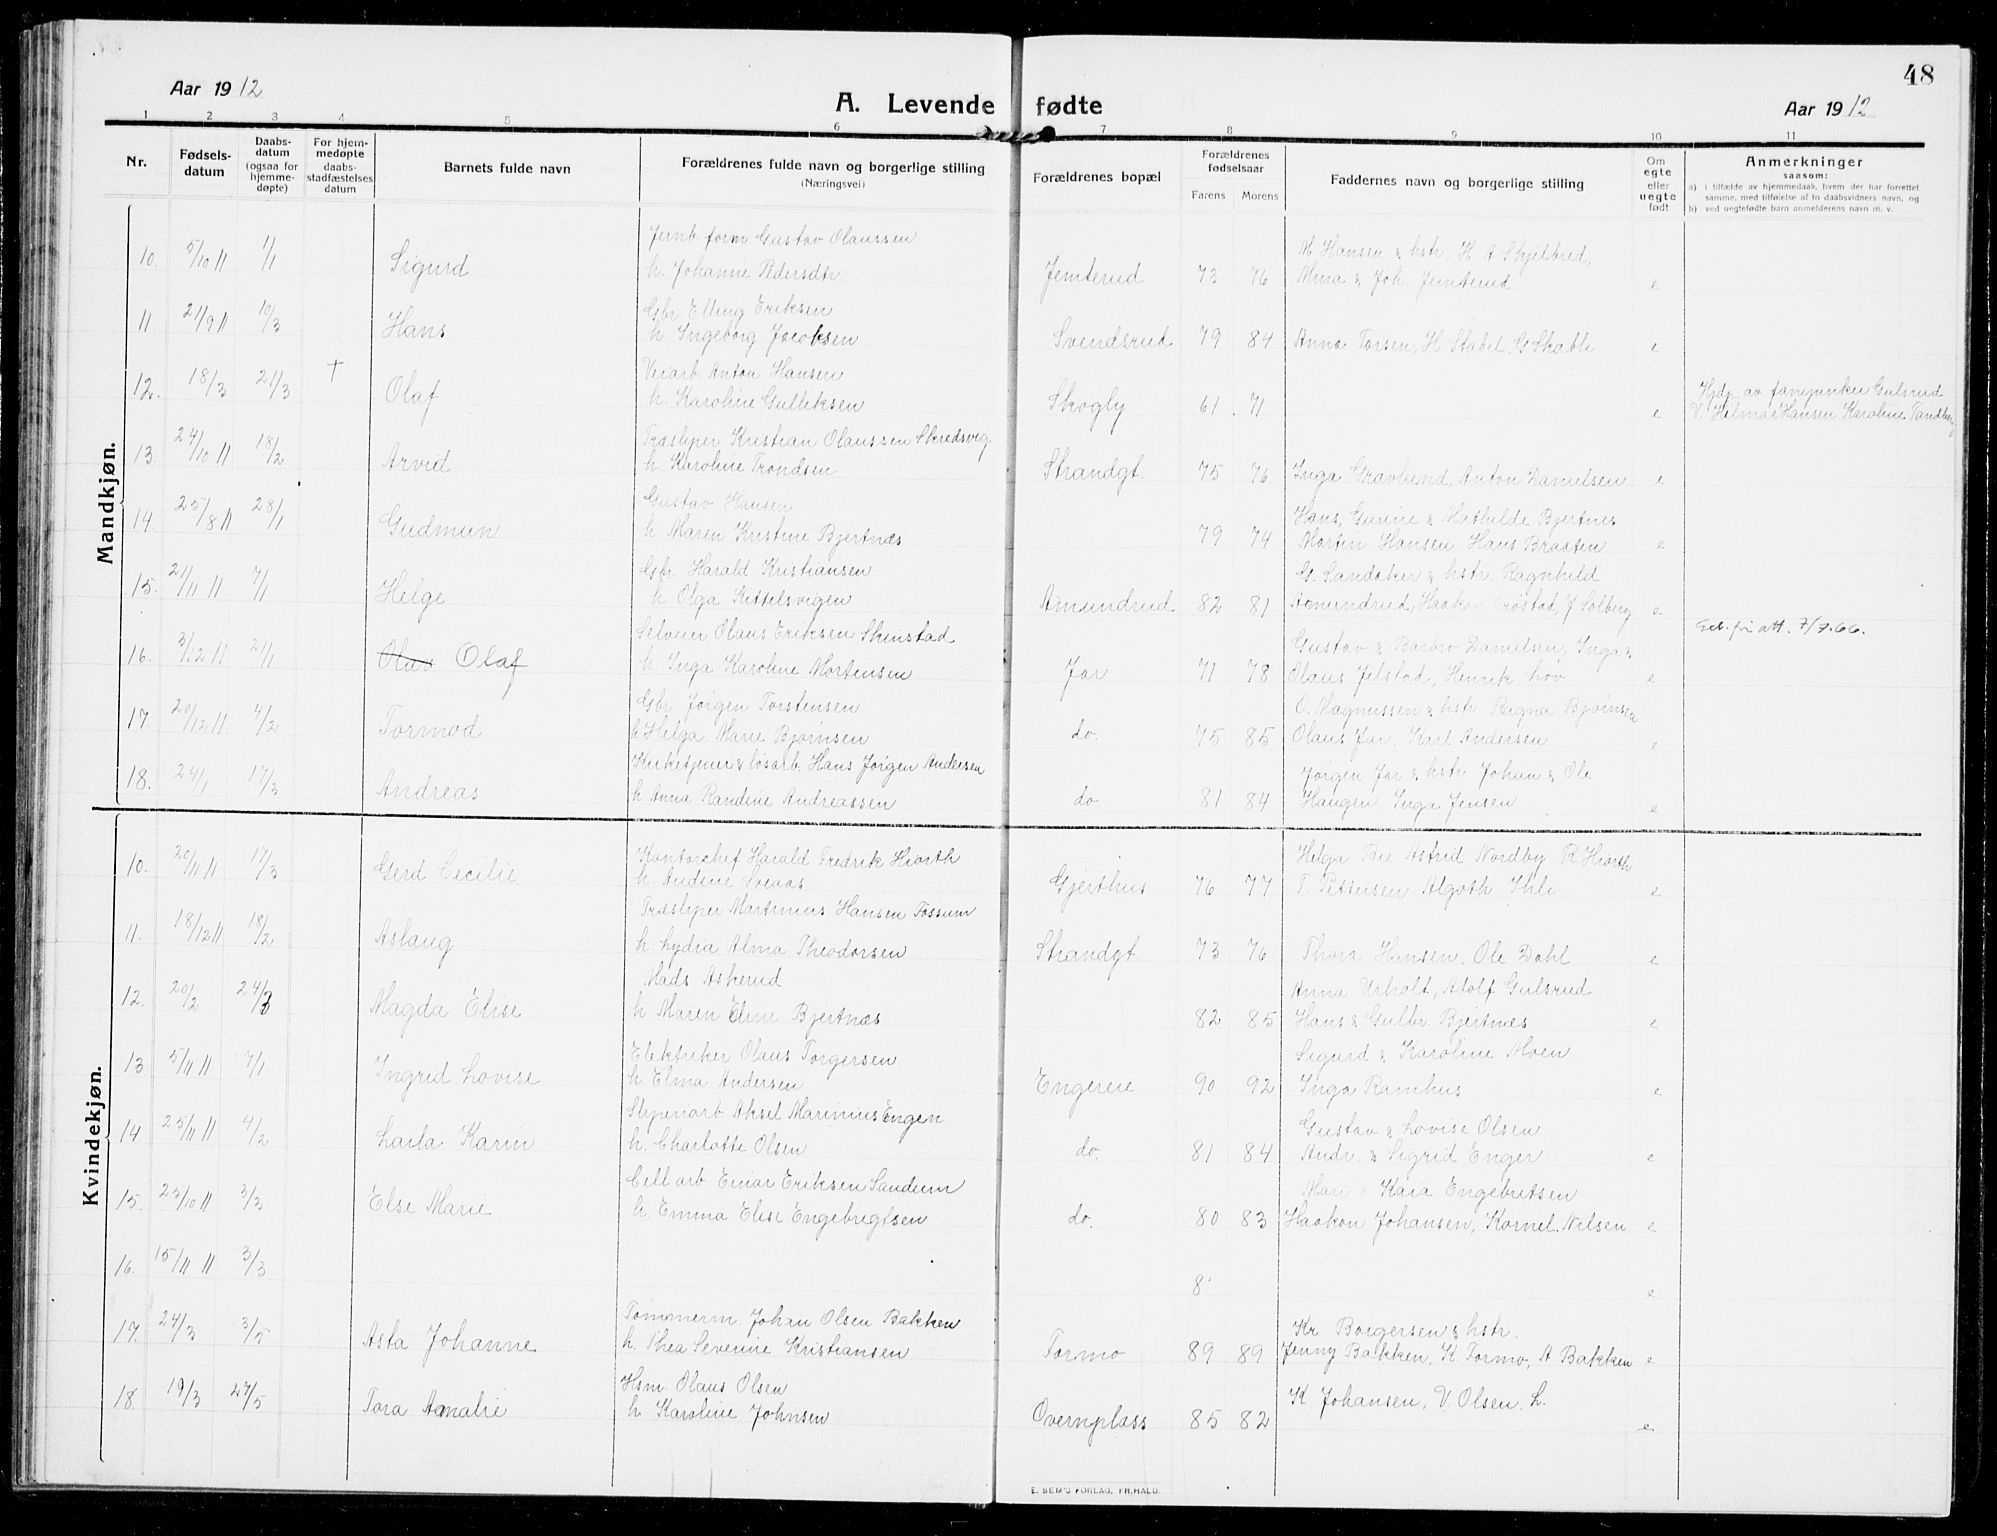 48
Aar 1912
A. Levende fødte
Aar 1912
1 2 3 4 5 6 7 8 9 10 11
Nr.
Fødsels-
datum
Daabs-
datum
(ogsaa for
hjemme-
døpte)
For hjem-
medøpte
daabs-
stadfæstelses
datum
Barnets fulde navn
Forældrenes fulde navn og borgerlige stilling
(Næringsvei)
Forældrenes bopæl
Forældrenes
fødselsaar
Farens Morens
Faddernes navn og borgerlige stilling
Om
egte
eller
uegte
født
Anmerkninger
saasom:
a) i tilfælde av hjemmedaab, hvem der har forrettet
samme, med tilføielse af to daabsvidners navn, og
b) ved uegtefødte barn anmelderens navn m. v.
Mandkjøn.
Jernb. form Gustav Olaussen M Hansen & hstr. H A Skjelbred,
10. 5/10 11 1/1 Sigurd h. Johanne Pedersdtr. Jemterud 73 76 Mina & Joh. Jemterud e
Gbr Elling Eriksen
11 21/9 11 10/3 Hans h Ingeborg Jacobsen Svendsrud 79 84 Anna Torsen, H Stabel, G Skatle e
Veiarb Anton Hansen
12. 18/3 21/3 † Olaf h. Karoline Gulliksen Skogly 61. 71 e Hjdp. av fanejunker Gulsrud
V. Hilma Hansen Karoline Tandberg
Træsliper Kristian Olaussen Skredsvig
13. 24/10 11 18/2 Arvid h. Karoline Trondsen Strandgt. 75 76 Inga Gravlund, Anton Danielsen e
Gustav Hansen Hans, Gurine & Mathilde Bjertnes
14. 25/8 11 28/1 Gudmun h Maren Kristine Bjertnæs 79 74 Martin Hansen Hans Braaten e
Gbr Harald Kristiansen G. Sandaker & hstr. Ragnhild
15. 21/11 11 7/1 Helge h Olga Kittelsvigen Amundrud 82 81 Amundrud, Haakon Frøstad, J Solberg e
Selveier Olaus Eriksen Skinstad Gustav & Barbro Danielsen, Inga & Geb. fri att. 7/7.66.
16. 3/12 11 21/1 Olav Olaf h Inga Karoline Mortensen Jar 71 78 Olaus Jelstad, Henrik Løv e
Gbr Jørgen Torstensen O. Magnussen & hstr Ragna Bjørnsen
17 20/12 11 4/2 Tormod h Helga Marie Bjørnsen do. 75 85 Olaus Jar. Karl Andersen e
Kirketjener & løsarb. Hans Jørgen Andersen Jørgen Jar & hstr Johan & Ole
18. 24/1 17/3 Andreas h Anna Randine Andreassen do 81 84 Haugen, Inga Jensen e
Kvindekjøn.
Kontorchef Harald Fredrik Hiorth Helga Bie Astrid Nordby R Hiorth
10. 20/11 11 17/3 Gerd Cecilie h. Andine Sveaas Gjeithus 76 77 T. Pettersen Algoth Ihle e
Træsliper Martinius Hansen Fossum
11. 18/12 11 18/2 Aslaug h Lydia Alma Theodorsen Strandgt 73 76 Thora Hansen, Ole Dahl e
Mads Askerud Anna Urholt, Adolf Gulsrud
12. 20/2 24/3 Magda Elise h Maren Eline Bjertnæs 82 85 Hans & Gulbr. Bjertnæs e
Elektriker Olaus Torgersen Sigurd & Karoline Moen
13 5/11 11 7/1 Ingrid Lovise h Elma Andersen Engereie 90 92 Inga Ramhus e
Sliperiarb Aksel Marinius Engen Gustav & Lovise Olsen
14 25/11 11 4/2 Laila Karin h. Charlotte Olsen do. 81 84 Andr. & Sigrid Enger e
Cell arb Einar Eriksen Sandum Mari & Kaia Engebretsen
15. 23/10 11 3/3 Else Marie h. Emma Elise Engebregtsen do. 80 83 Haakon Johansen, Kornel. Nilsen e
16. 15/11 11 3/3 8 e
Tømmerm Johan Olsen Bakken Kr Borgersen & hstr.
17. 24/3 3/5 Asta Johanne h. Thea Severine Kristiansen Tormo 89 89 Jenny Bakken, K Tormo, A Bakken e
Hsm. Olaus Olsen K Johansen, V. Olsen. L.
18. 19/3 27/5 Tora Amalie h Karoline Johnsen Overnplass 85 82 e
E. SEM'S FORLAG, FR.HALD.